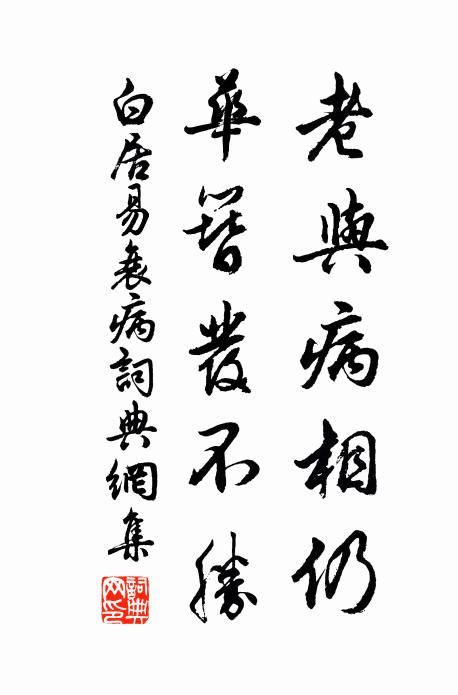 老與病相仍
華簪發不勝
白居易衰病詞典網集
詞典网印